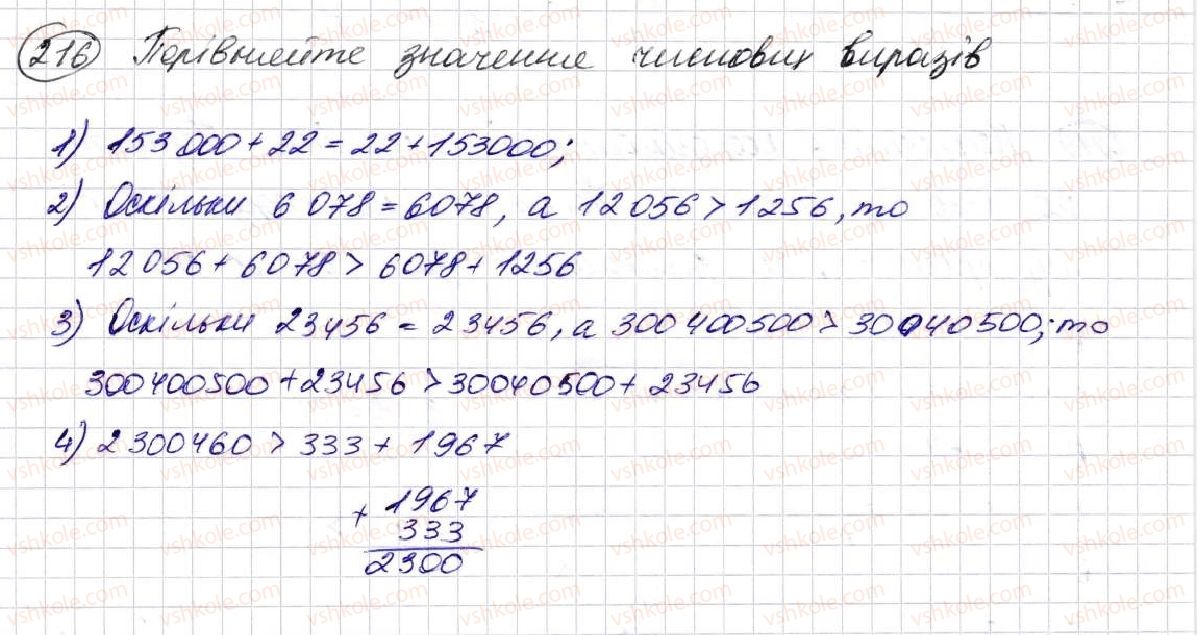 216 Порівняйте значення числових виразів
1) 153 000 + 22 = 22 + 153000;
2) Оскільки 6 078 = 6078, а 12 056 > 1256, то
12 056 + 6078 > 6078 + 1256
3) Оскільки 23456 = 23456, а 300 400 500 > 30040500; то
300400500 + 23456 > 30040500 + 23456
4) 2 300 460 > 333 + 1967
+ 1967
333
2300